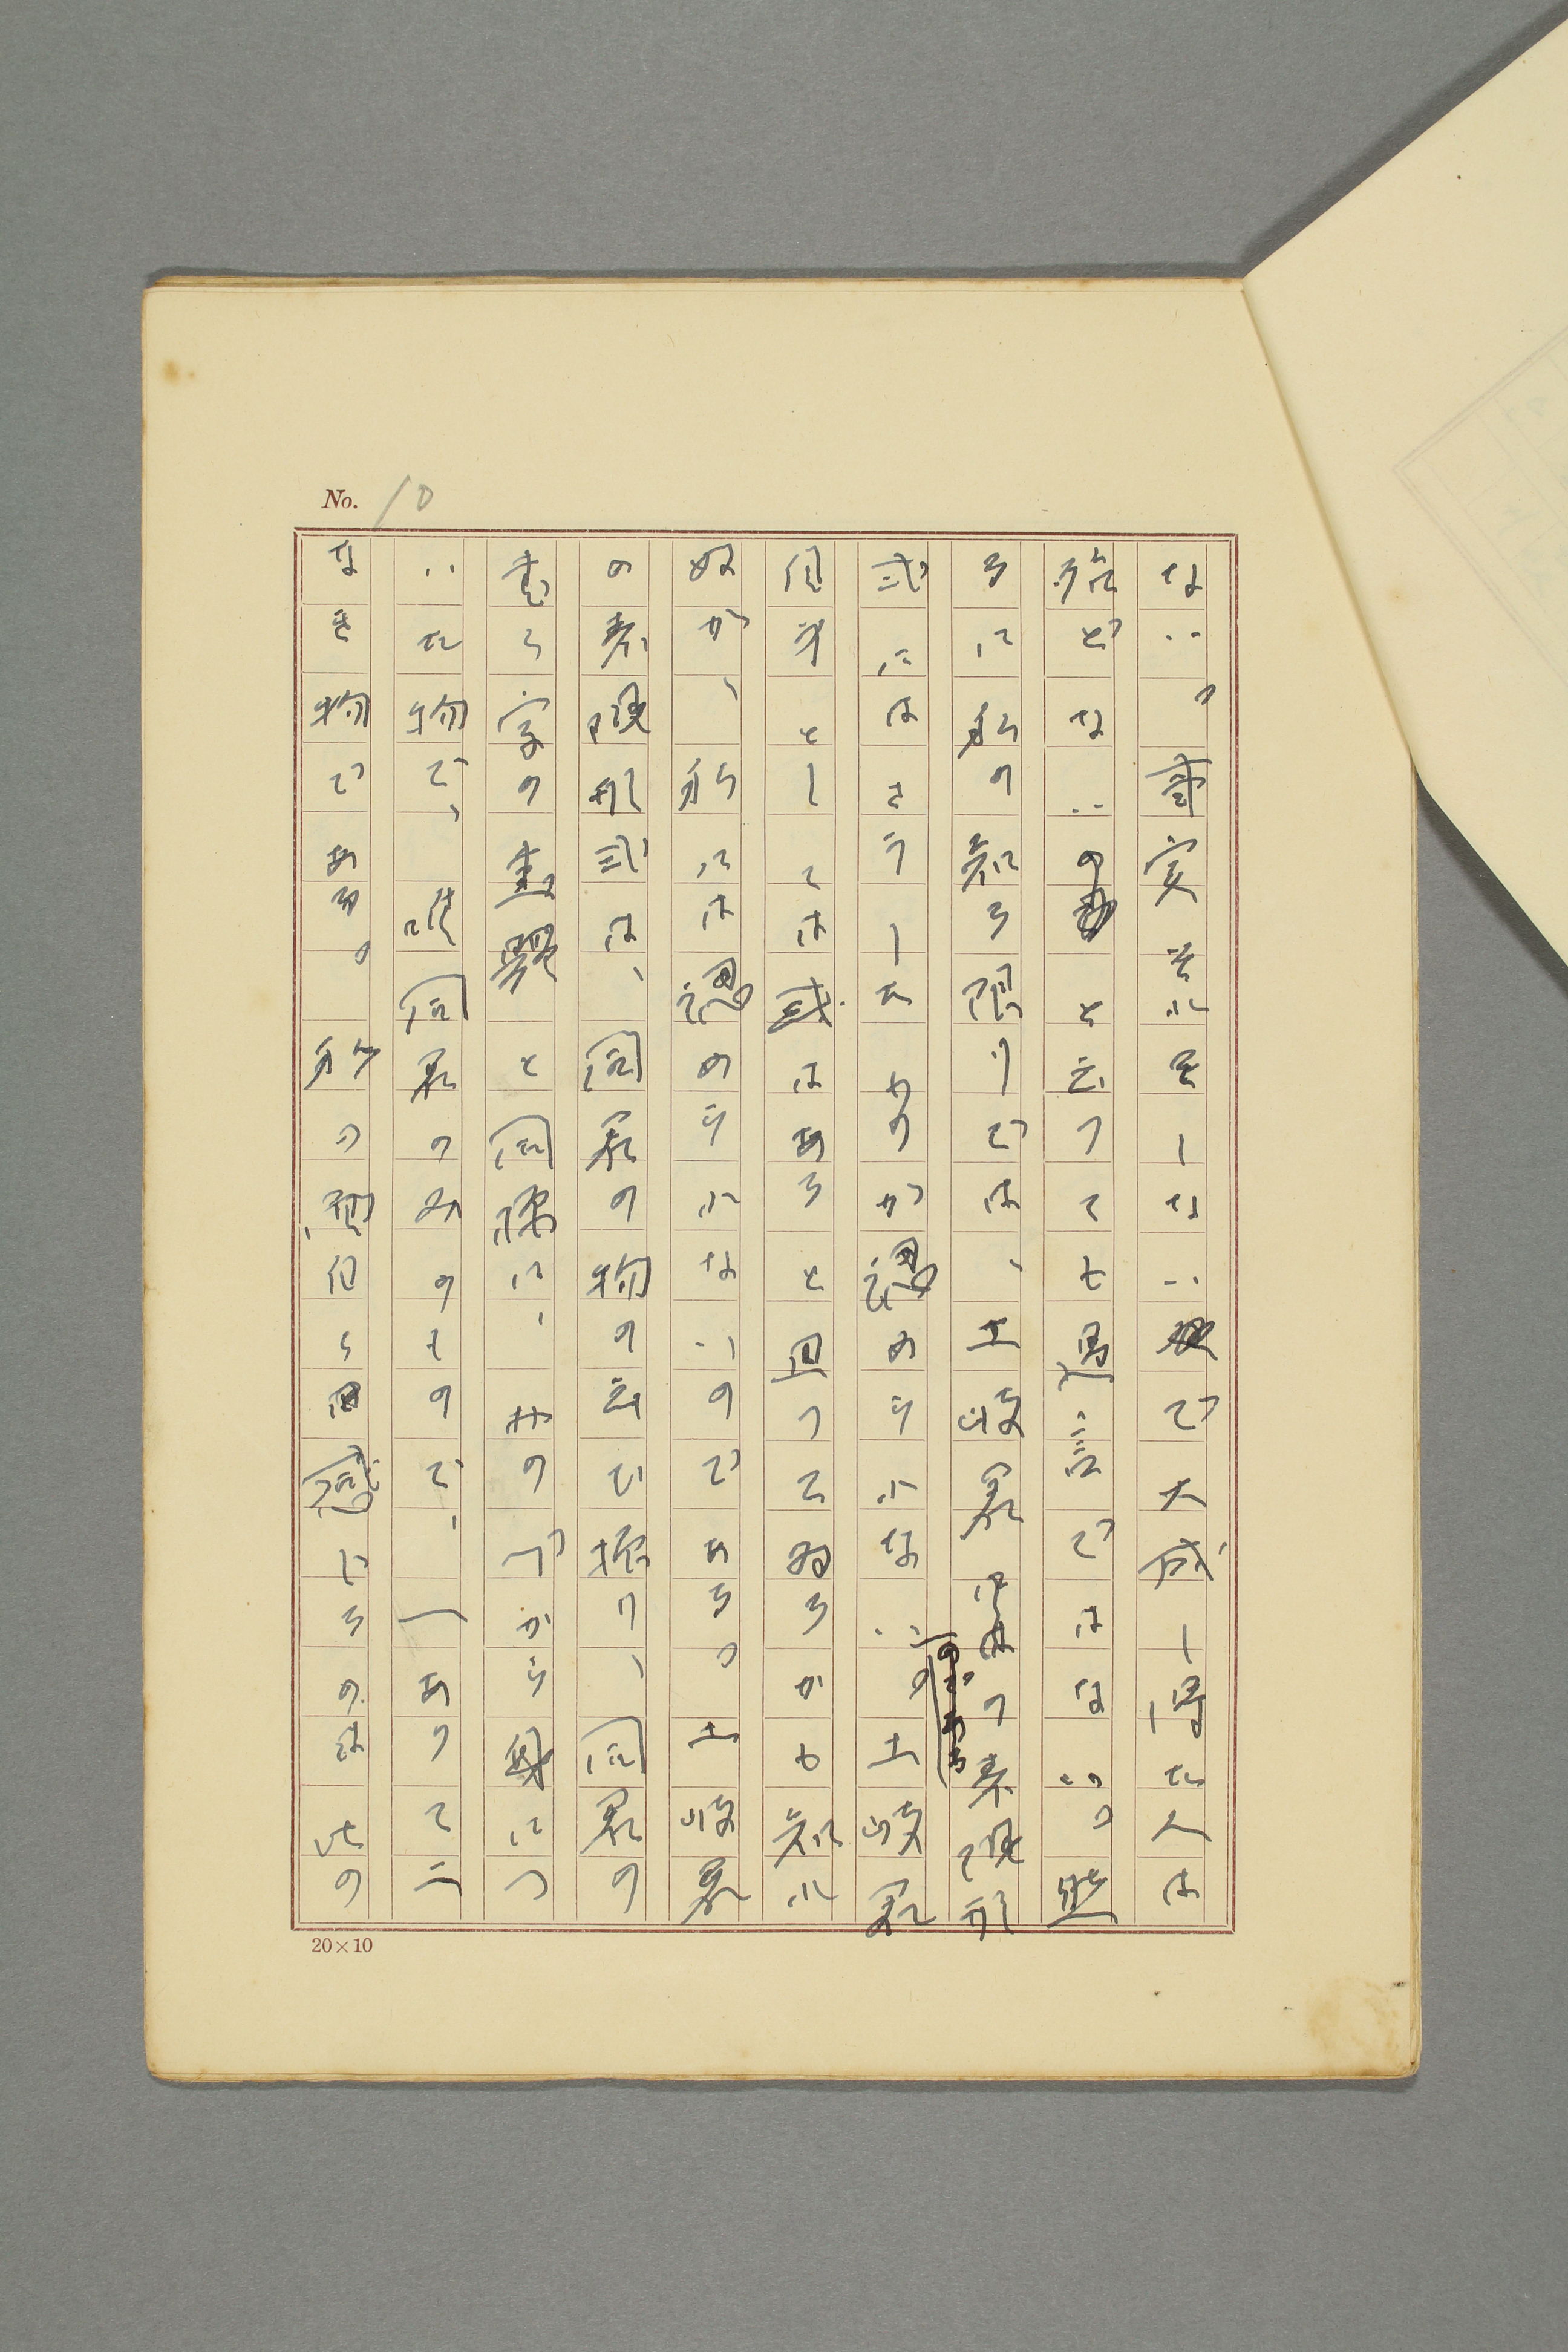 No. 10
ない。事実それをしないで大成し得た人は
殆どないのと云つても過言ではない。然
るに私の知る限りでは、土岐君つ表現形
式にはさうしたものが認められない。土岐君
自身としては或はあるとつてゐるかも知れ
ぬが、私には認められないのである。土岐君
の表現形式は、同君の物の云ひ振り、同君の
書く字の書と同様に、おのづから身につ
いた物で、唯同君のみのもので、一ありて二
なき物である。私の面白く感じるのは此の
20×10